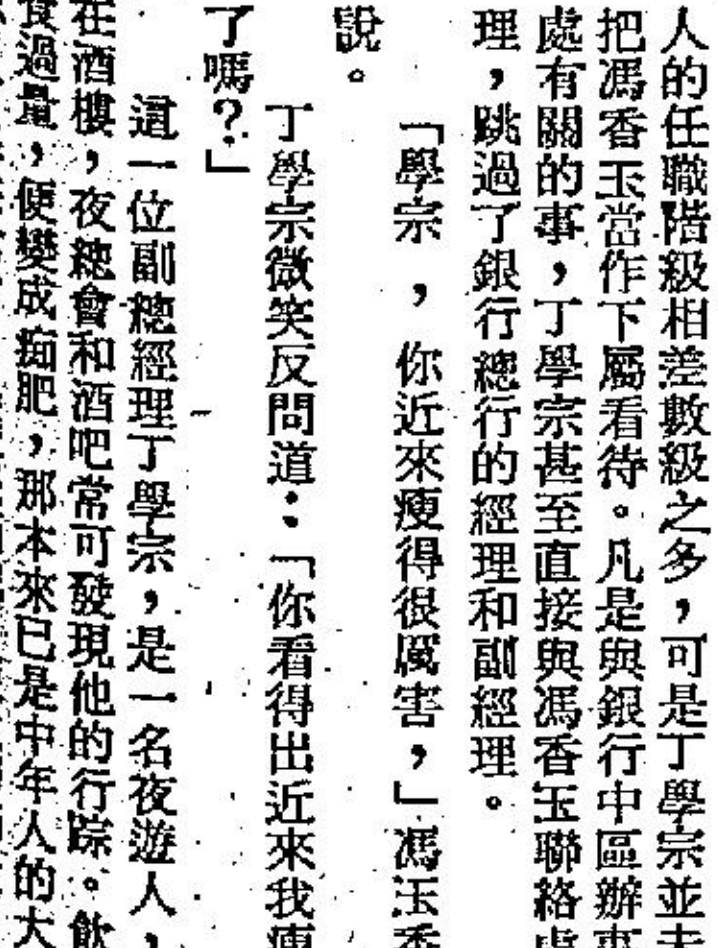 人的任職階級相差數級之多，可是丁學宗並未
把馮香玉當作下屬看待。凡是與銀行中區辦事
處有關的事，丁學宗甚至直接與馮香玉聯絡處
理，跳過了銀行總行的經理和副經理。
「學宗，你近來瘦得很厲害，」馮玉香
說。
丁學宗微笑反問道：「你看得出近來我瘦
了嗎？」
這一位副總經理丁學宗，是一名夜遊人，
在酒樓，夜總會和酒吧常可發現他的行踪。飲
食過量，便變成痴肥，那本來已是中年人的大